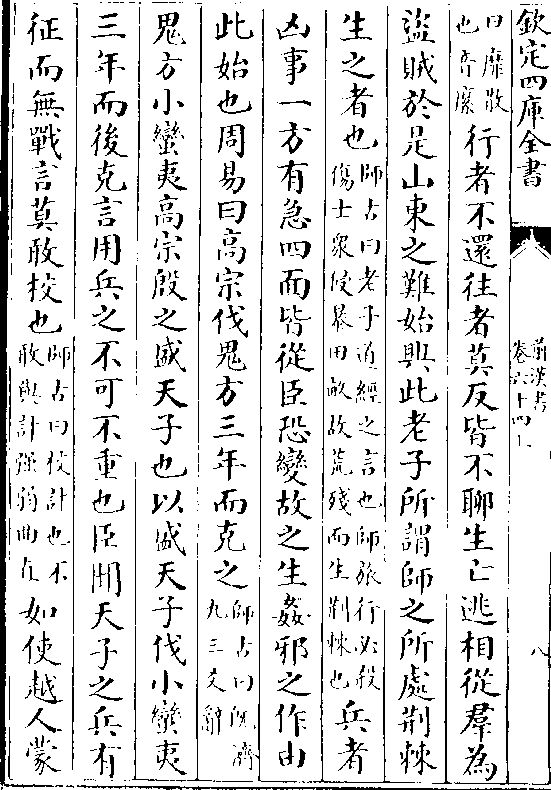 欽定四庫全書
前漢書
卷六十四上
八
曰靡散
也音縻
行者不還往者莫反皆不聊生亡逃相從羣為
盜賊於是山東之難始興此老子所謂師之所處荊棘
生之者也
師古曰老子道經之言也師旅行必殺
傷士衆侵暴田畝故荒殘而生荊棘也
兵者
凶事一方有急四面皆從臣恐變故之生姦邪之作由
此始也周易曰高宗伐鬼方三年而克之
師古曰既濟
九三爻辭
鬼方小蠻夷高宗殷之盛天子也以盛天子伐小蠻夷
三年而後克言用兵之不可不重也臣聞天子之兵有
征而無戰言莫敢校也
師古曰校計也不
敢與計强弱曲直
如使越人蒙